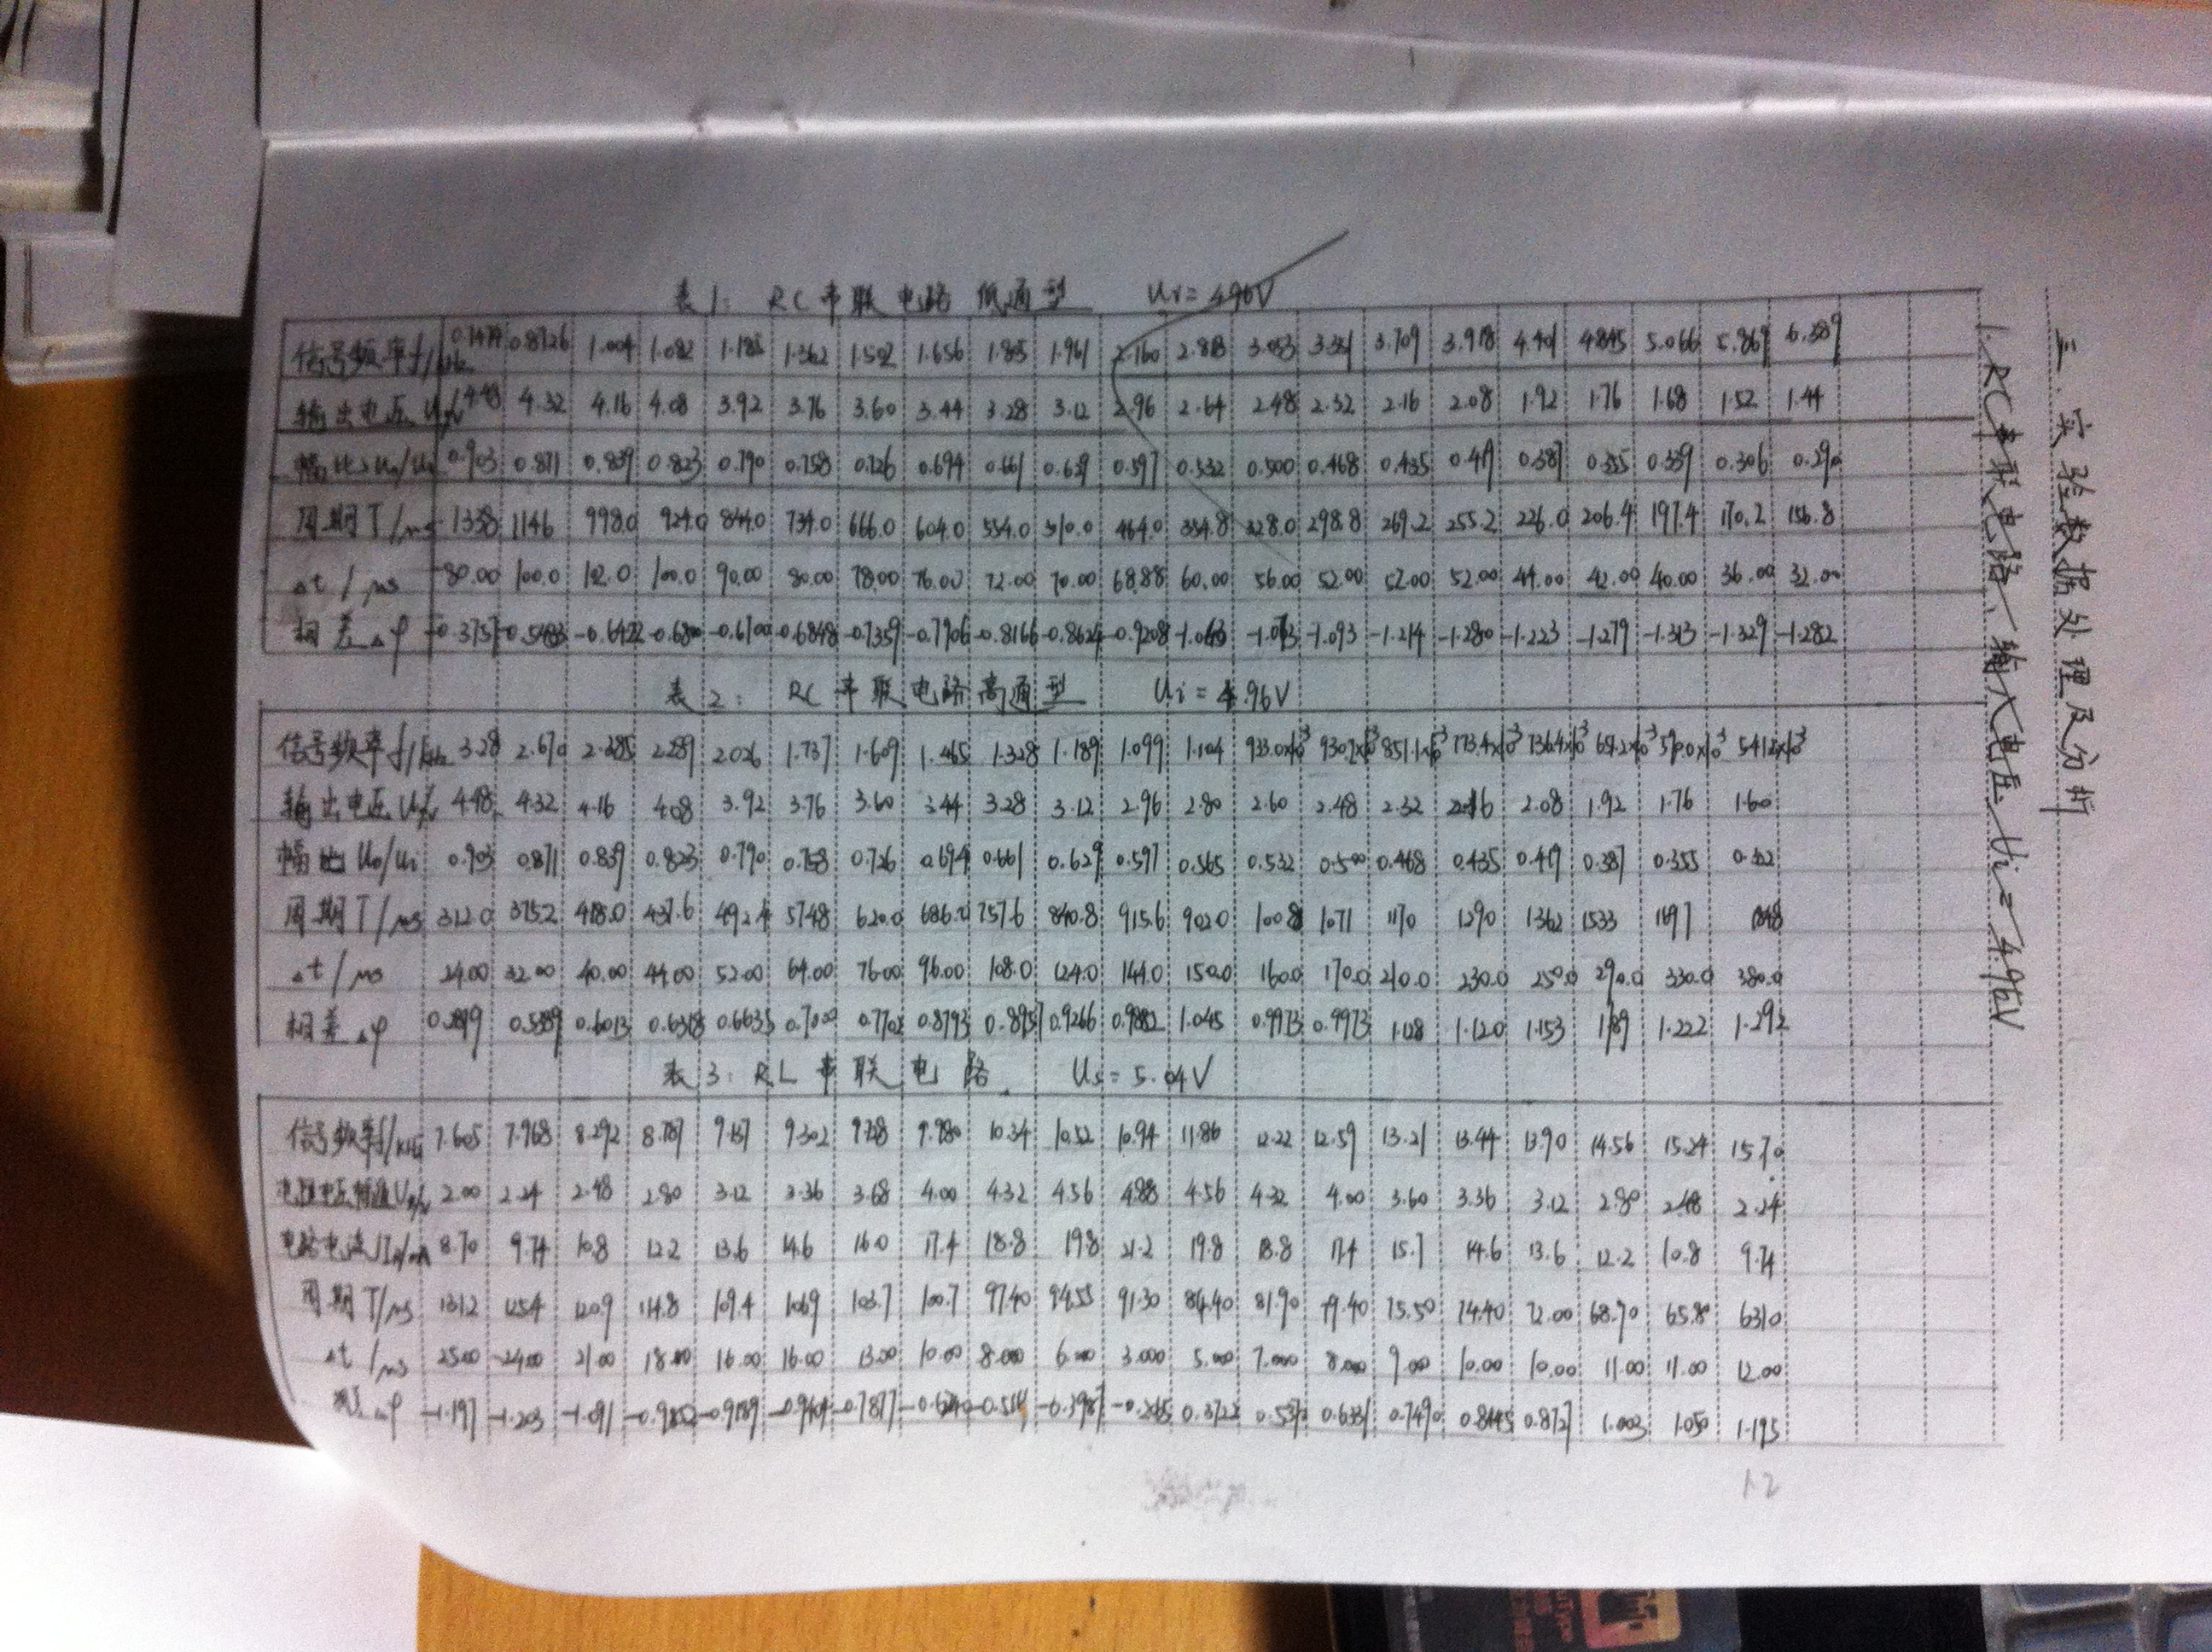 三、实验数据处理及分析
1. RC串联电路、输入电压 Ui = 4.96V
表1: RC串联电路低通型 Ui = 4.96V
信号频率f/kHz 0.7474 0.8726 1.004 1.082 1.185 1.362 1.502 1.656 1.805 1.961 2.160 2.818 3.053 3.351 3.709 3.918 4.401 4.845 5.066 5.869 6.389
输出电压U0/V 4.48 4.32 4.16 4.08 3.92 3.76 3.60 3.44 3.28 3.12 2.96 2.64 2.48 2.32 2.16 2.08 1.92 1.76 1.68 1.52 1.44
幅比u0/ui 0.903 0.871 0.839 0.823 0.790 0.758 0.726 0.694 0.661 0.629 0.597 0.532 0.500 0.468 0.435 0.419 0.387 0.355 0.339 0.306 0.290
周期T/μs 1338 1146 998.0 924.0 844.0 734.0 666.0 604.0 554.0 510.0 464.0 354.8 328.0 298.8 269.2 255.2 226.0 206.4 197.4 170.2 156.8
Δt/μs 80.00 100.0 102.0 100.0 90.00 80.00 78.00 76.00 72.00 70.00 68.88 60.00 56.00 52.00 52.00 52.00 44.00 42.00 40.00 36.00 32.00
相差Δφ -0.3757 -0.5483 -0.6422 -0.680 -0.6700 -0.6848 -0.7359 -0.7906 -0.8166 -0.8624 -0.9208 -1.063 -1.073 -1.093 -1.214 -1.280 -1.223 -1.279 -1.313 -1.329 -1.282
表2: RC串联电路高通型 Ui = 4.96V
信号频率f/kHz 3.28 2.670 2.385 2.289 2.026 1.737 1.609 1.465 1.328 1.189 1.099 1.104 933.0×10³ 930.2×10³ 851.1×10³ 773.4×10³ 736.4×10³ 652.2×10³ 590.0×10³ 541.2×10³
输出电压U0/V 4.48 4.32 4.16 4.08 3.92 3.76 3.60 3.44 3.28 3.12 2.96 2.80 2.60 2.48 2.32 2.16 2.08 1.92 1.76 1.60
幅比U0/Ui 0.903 0.871 0.839 0.823 0.790 0.758 0.726 0.694 0.661 0.629 0.597 0.565 0.532 0.500 0.468 0.435 0.419 0.387 0.355 0.322
周期T/μs 312.0 375.2 418.0 437.6 492.4 574.8 620.0 686.0 757.6 840.8 915.6 902.0 1008 1071 1170 1290 1362 1533 1697 1848
Δt/μs 24.00 32.00 40.00 44.00 52.00 64.00 76.00 96.00 108.0 124.0 144.0 150.0 160.0 170.0 210.0 230.0 250.0 290.0 330.0 380.0
相差Δφ 0.5359 0.6013 0.6318 0.6635 0.7000 0.7702 0.8793 0.8957 0.9266 0.9882 1.045 0.9973 0.9973 1.128 1.120 1.153 1.189 1.222 1.292
表3: RL串联电路 Us = 5.04V
信号频率f/kHz 7.605 7.968 8.292 8.787 9.137 9.302 9.728 9.980 10.34 10.52 10.94 11.86 12.22 12.59 13.21 13.44 13.90 14.56 15.24 15.70
电阻电压幅值UR/V 2.00 2.24 2.48 2.80 3.12 3.36 3.68 4.00 4.32 4.56 4.88 4.56 4.32 4.00 3.60 3.36 3.12 2.80 2.48 2.24
电路电流I/mA 8.70 9.74 10.8 12.2 13.6 14.6 16.0 17.4 18.8 19.8 21.2 19.8 18.8 17.4 15.7 14.6 13.6 12.2 10.8 9.74
周期T/μs 131.2 125.4 120.9 114.8 109.4 106.9 103.7 100.7 97.40 94.55 91.30 84.40 81.90 79.40 75.50 74.40 72.00 68.70 65.80 63.10
Δt/μs 25.00 24.00 21.00 18.00 16.00 16.00 13.00 10.00 8.000 6.000 3.000 5.000 7.000 8.000 9.00 10.00 10.00 11.00 11.00 12.00
相差Δφ -1.197 -1.203 -1.091 -0.9852 -0.9189 -0.9404 -0.7877 -0.6240 -0.516 -0.3987 -0.2065 0.3722 0.5370 0.6331 0.7490 0.8445 0.8727 1.003 1.050 1.195
12